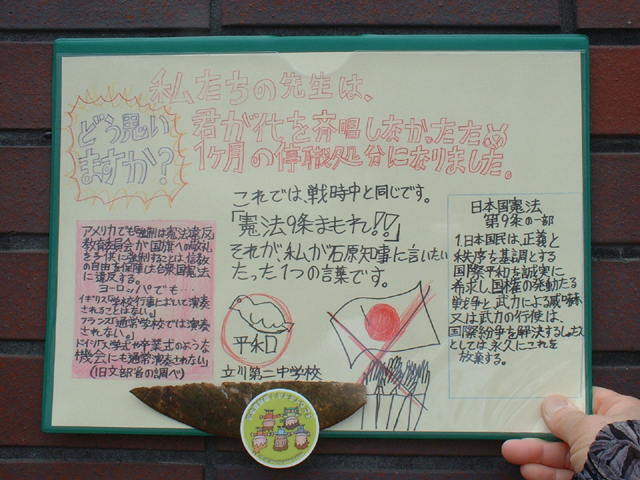 私たちの先生は、
君が代を斉唱しなかったため
1ヶ月の停職処分になりました。
どう思い
ますか?
これでは、戦時中と同じです。
「憲法9条まもれ!!」
それが、私が石原知事に言いたい
たった1つの言葉です。
アメリカでも「強制は憲法違反」
教育委員会が国旗への敬礼
を子供に強制することは、信教
の自由を保障した合衆国憲法
に違反する。
ヨーロッパでも…
イギリス「学校行事において演奏
されることはない」
フランス「通常学校では演奏
されない。」
ドイツ「入学式や卒業式のような
機会にも通常演奏されない」
(旧文部省の調べ)
平和
立川第二中学校
日本国憲法
第9条の一部
1.日本国民は、正義と
秩序を基調とする
国際平和を誠実に
希求し、国権の発動たる
戦争と、武力による威嚇
又は武力の行使は、
国際紛争を解決する手段
としては、永久にこれを
放棄する。